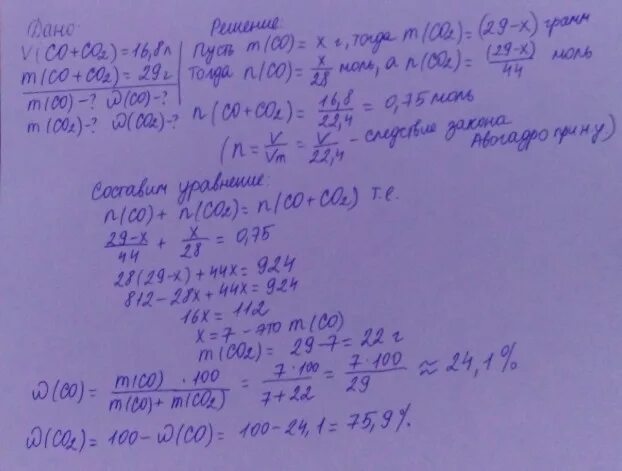 Дано:
V(CO+CO2)=16,8л
m(CO+CO2)=29г
m(CO)-? ω(CO)-?
m(CO2)-? ω(CO2)-?
Решение:
Пусть m(CO)=x г, тогда m(CO2)=(29-x) грамм
Тогда n(CO)=x/28 моль, а n(CO2)=(29-x)/44 моль
n(CO+CO2)=16,8/22,4=0,75 моль
(n=V/Vm=V/22,4 - следствие закона Авогадро при н.у)
Составим уравнение:
n(CO)+n(CO2)=n(CO+CO2) т.е.
29-x/44 + x/28 = 0,75
28(29-x)+44x=924
812-28x+44x=924
16x=112
x=7 - это m(CO)
m(CO2)=29-7=22 г
ω(CO)=m(CO)·100/m(CO)+m(CO2)=7·100/7+22=7·100/29≈24,1%
ω(CO2)=100-ω(CO)=100-24,1=75,9%.